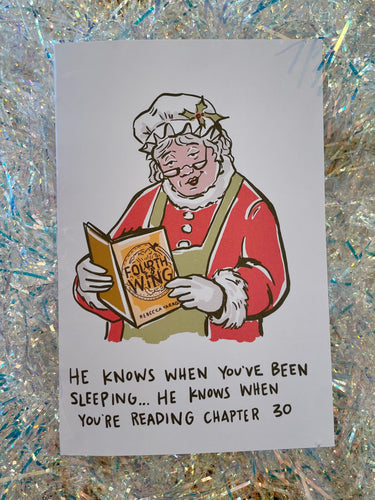 FOURTH
WING
REBECCA YARROS
HE KNOWS WHEN YOU'VE BEEN
SLEEPING... HE KNOWS WHEN
YOU'RE READING CHAPTER 30